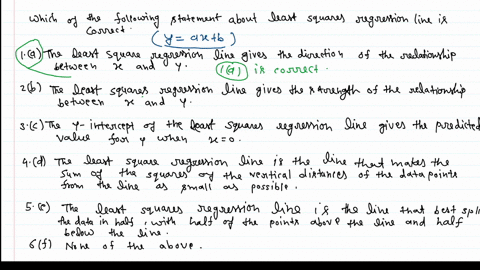 Which of the following statement about least squares regression line is
correct.
(y = ax+b)
1.(a) The least square regression line gives the direction of the relationship
between x and y.
1(a) is correct.
2(b) The least squares regression line gives the strength of the relationship
between x and y.
3.(c) The y-intercept of the least squares regression line gives the predicted
value for y when x=0.
4.(d) The least square regression line is the line that makes the
sum of the squares of the vertical distances of the data points
from the line as small as possible.
5.(e) The least squares regression line is the line that best spli
the data in half, with half of the points above the line and half
below the line.
6(f) None of the above.